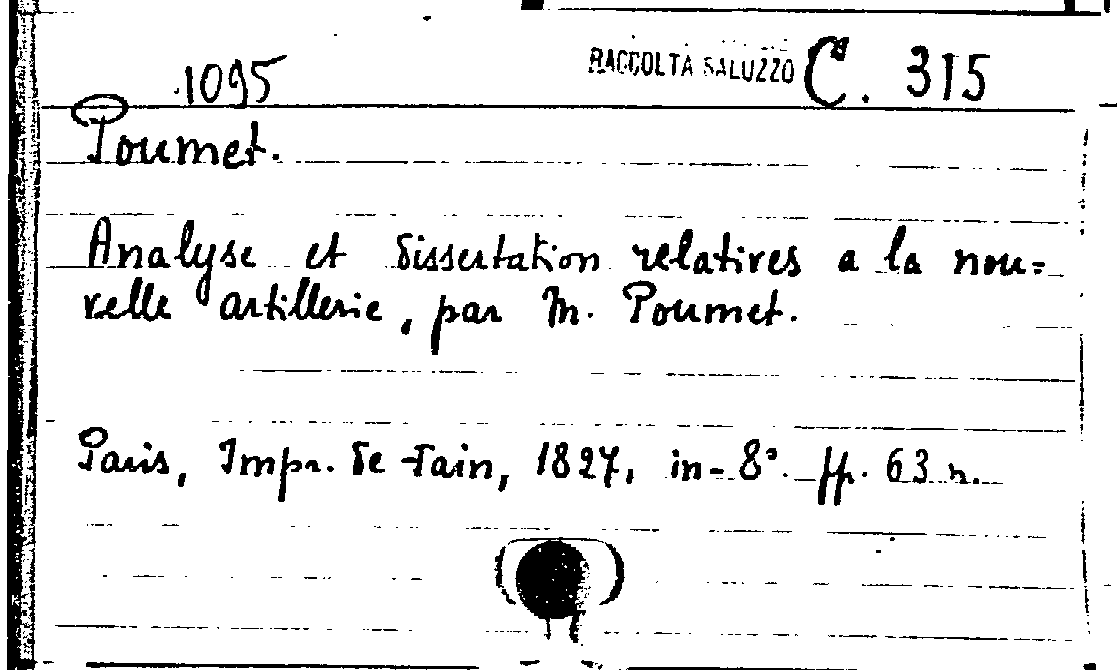 1095 RACCOLTA SALUZZO C. 315
Poumet.
Analyse et dissertation relatives a la nou=
velle artillerie, par M. Poumet.
Paris, Impr. de Fain, 1827, in-8°. pp. 63 n.